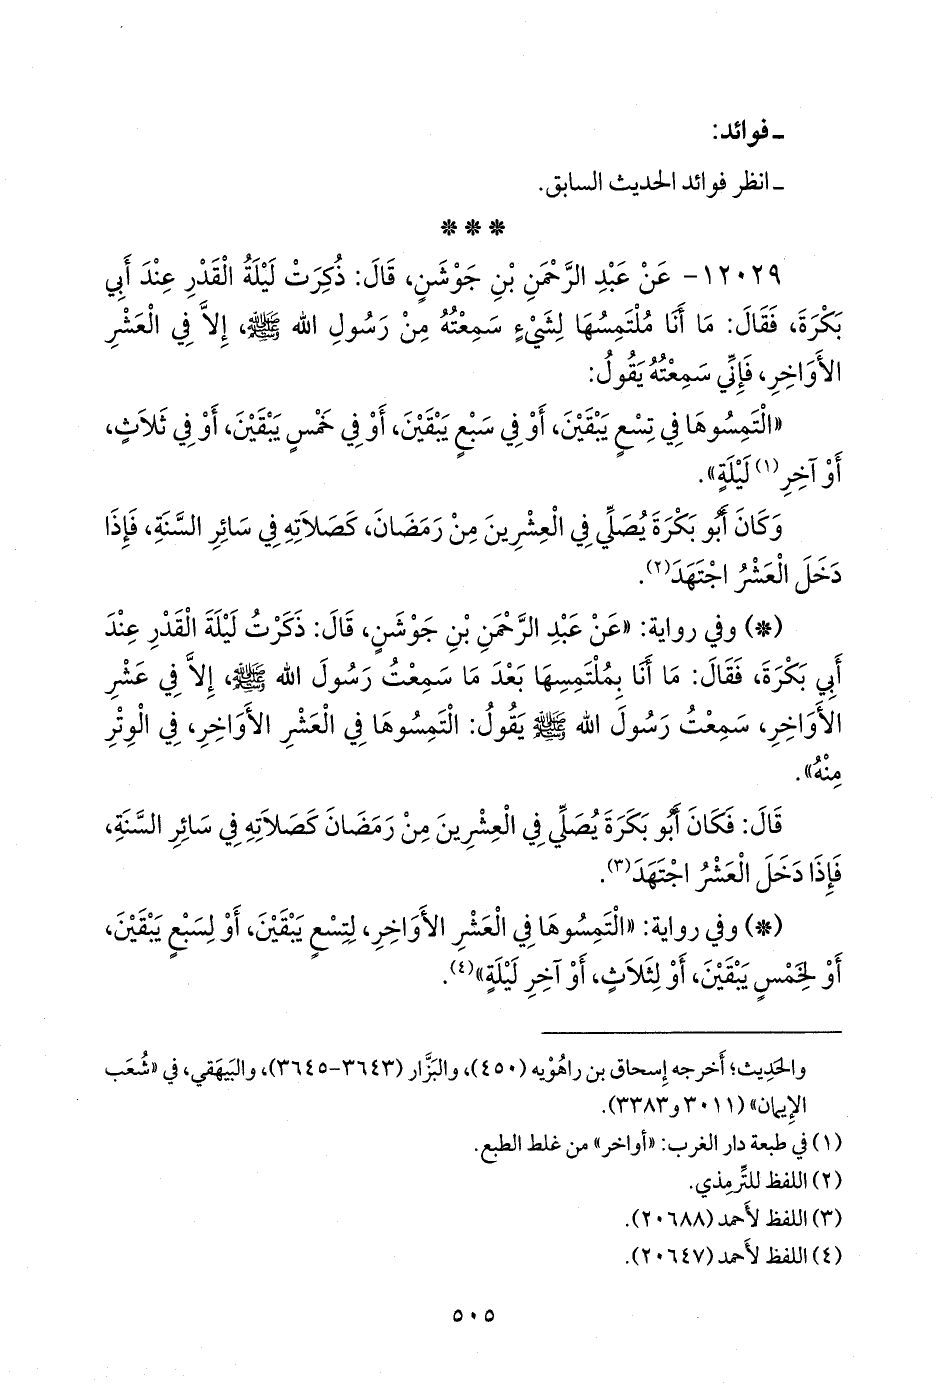 ـ فوائد:
ـ انظر فوائد الحديث السابق.
***
١٢٠٢٩- عَنْ عَبْدِ الرَّحْمَنِ بْنِ جَوْشَنٍ، قَالَ: ذُكِرَتْ لَيْلَةُ الْقَدْرِ عِنْدَ أَبِي
بَكْرَةَ، فَقَالَ: مَا أَنَا مُلْتَمِسُهَا لِشَيْءٍ سَمِعْتُهُ مِنْ رَسُولِ الله ﷺ، إِلاَّ فِي الْعَشْرِ
الأَوَاخِرِ، فَإِنِّي سَمِعْتُهُ يَقُولُ:
«الْتَمِسُوهَا فِي تِسْعٍ يَبْقَيْنَ، أَوْ فِي سَبْعٍ يَبْقَيْنَ، أَوْ فِي خَمْسٍ يَبْقَيْنَ، أَوْ فِي ثَلاَثٍ،
أَوْ آخِرِ(١) لَيْلَةٍ».
وَكَانَ أَبُو بَكْرَةَ يُصَلِّي فِي الْعِشْرِينَ مِنْ رَمَضَانَ، كَصَلاَتِهِ فِي سَائِرِ السَّنَةِ، فَإِذَا
دَخَلَ الْعَشْرُ اجْتَهَدَ(٢).
(*) وفي رواية: «عَنْ عَبْدِ الرَّحْمَنِ بْنِ جَوْشَنٍ، قَالَ: ذَكَرْتُ لَيْلَةَ الْقَدْرِ عِنْدَ
أَبِي بَكْرَةَ، فَقَالَ: مَا أَنَا بِمُلْتَمِسِهَا بَعْدَ مَا سَمِعْتُ رَسُولَ الله ﷺ، إِلاَّ فِي عَشْرِ
الأَوَاخِرِ، سَمِعْتُ رَسُولَ الله ﷺ يَقُولُ: الْتَمِسُوهَا فِي الْعَشْرِ الأَوَاخِرِ، فِي الْوِتْرِ
مِنْهُ».
قَالَ: فَكَانَ أَبُو بَكَرَةَ يُصَلِّي فِي الْعِشْرِينَ مِنْ رَمَضَانَ كَصَلاَتِهِ فِي سَائِرِ السَّنَةِ،
فَإِذَا دَخَلَ الْعَشْرُ اجْتَهَدَ(٣).
(*) وفي رواية: «الْتَمِسُوهَا فِي الْعَشْرِ الأَوَاخِرِ، لِتِسْعٍ يَبْقَيْنَ، أَوْ لِسَبْعٍ يَبْقَيْنَ،
أَوْ لِخَمْسٍ يَبْقَيْنَ، أَوْ لِثَلاَثٍ، أَوْ آخِرِ لَيْلَةٍ»(٤).
والحَدِيث؛ أَخرجه إِسحاق بن رَاهُوْيه (٤٥٠)، والبَزَّار (٣٦٤٣-٣٦٤٥)، والبَيهَقي، في «شُعَب
الإِيمان» (٣٠١١ و٣٣٨٣).
(١) في طبعة دار الغرب: «أواخر» من غلط الطبع.
(٢) اللفظ للتِّرمِذي.
(٣) اللفظ لأَحمد (٢٠٦٨٨).
(٤) اللفظ لأَحمد (٢٠٦٤٧).
٥٠٥